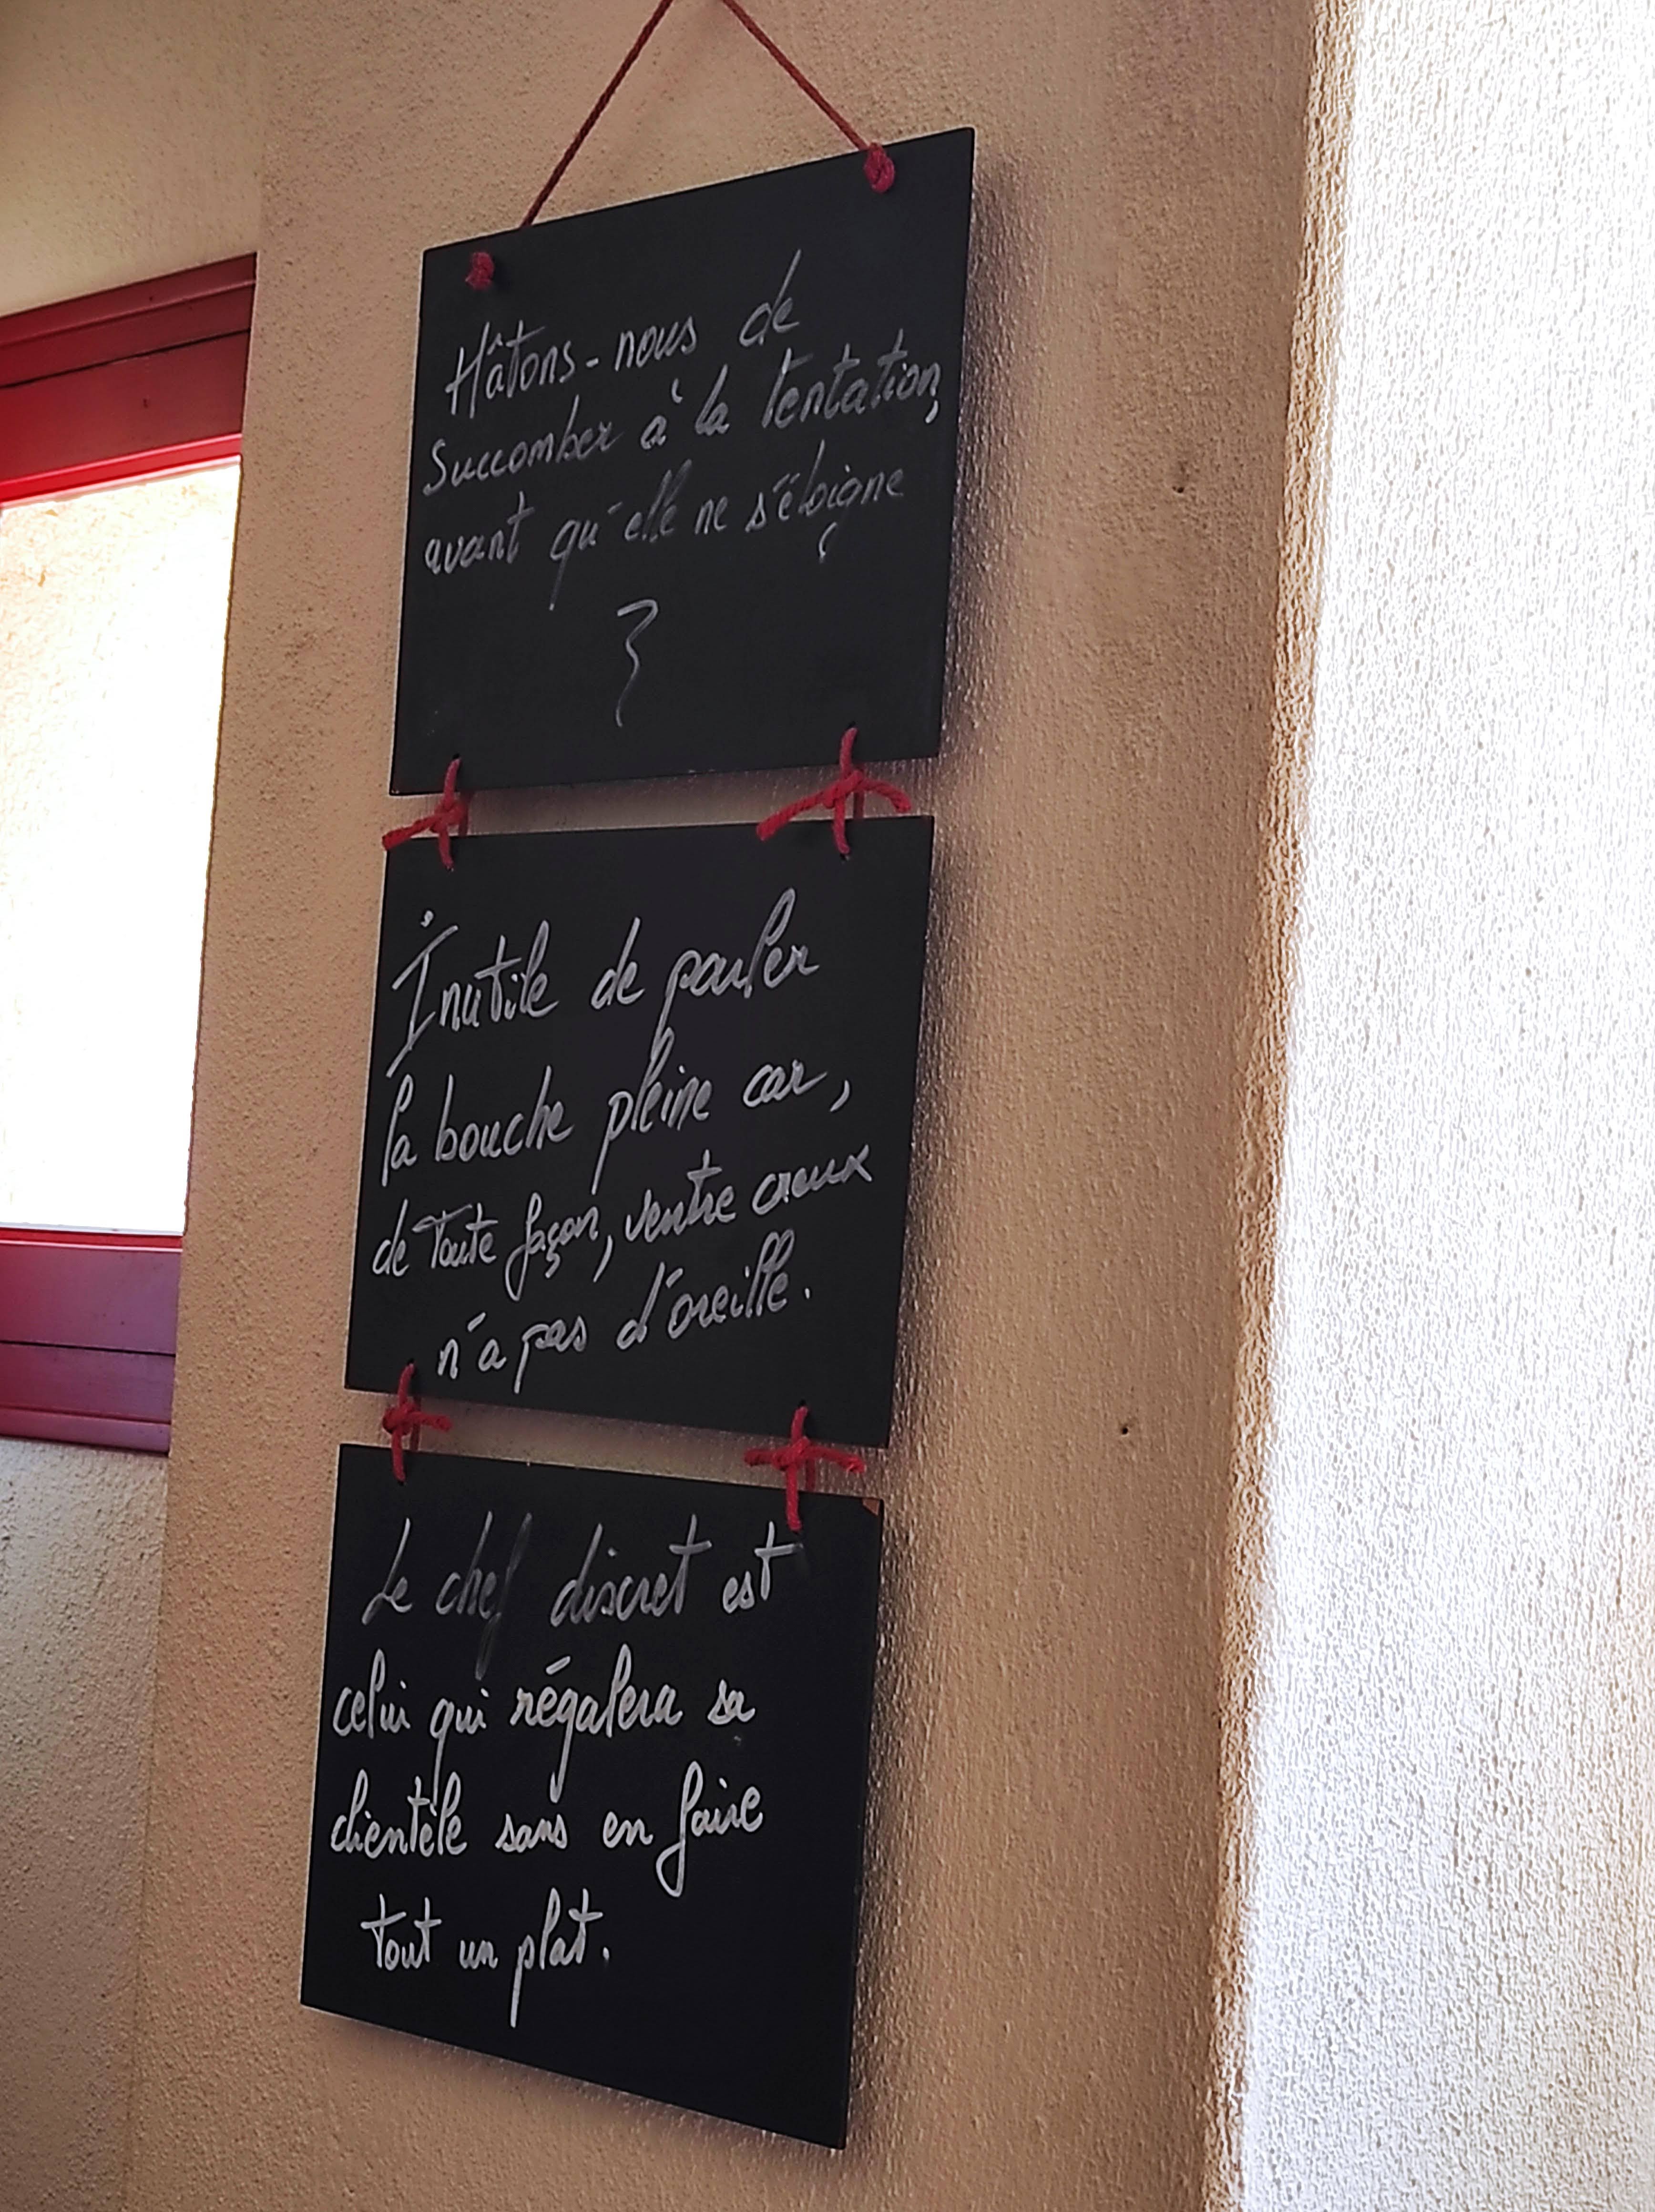 Hâtons-nous de
succomber à la tentation,
avant qu'elle ne s'éloigne
Inutile de parler
la bouche pleine car,
de toute façon, ventre creux
n'a pas d'oreille.
Le chef discret est
celui qui régalera sa
clientèle sans en faire
tout un plat.